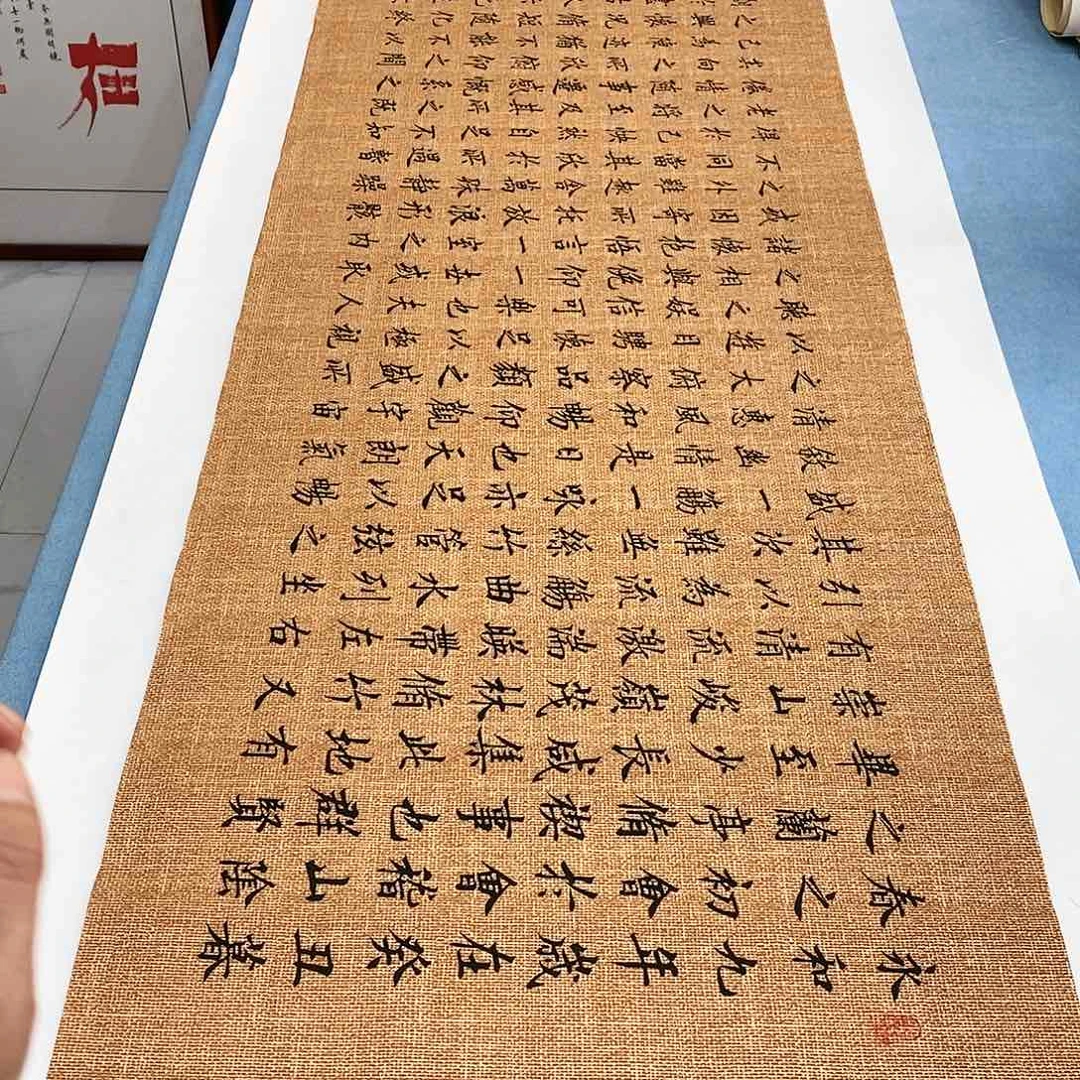 永和九年歲在癸丑暮
春之初會於會稽山陰
之蘭亭脩禊事也群賢
畢至少長咸集此地有
崇山峻嶺茂林脩竹又
有清流激湍暎帶左右
引以為流觴曲水列坐
其次雖無絲竹管弦之
盛一觴一詠亦足以暢
敘幽情是日也天朗氣
清惠風和暢仰觀宇宙
之大俯察品類之盛所
以遊目騁懷足以極視
聽之娛信可樂也夫人
之相與俯仰一世或取
諸懷抱悟言一室之內
或因寄所託放浪形骸
之外雖趣舍萬殊靜躁
不同當其欣於所遇暫
得於己怏然自足不知
老之將至及其所之既